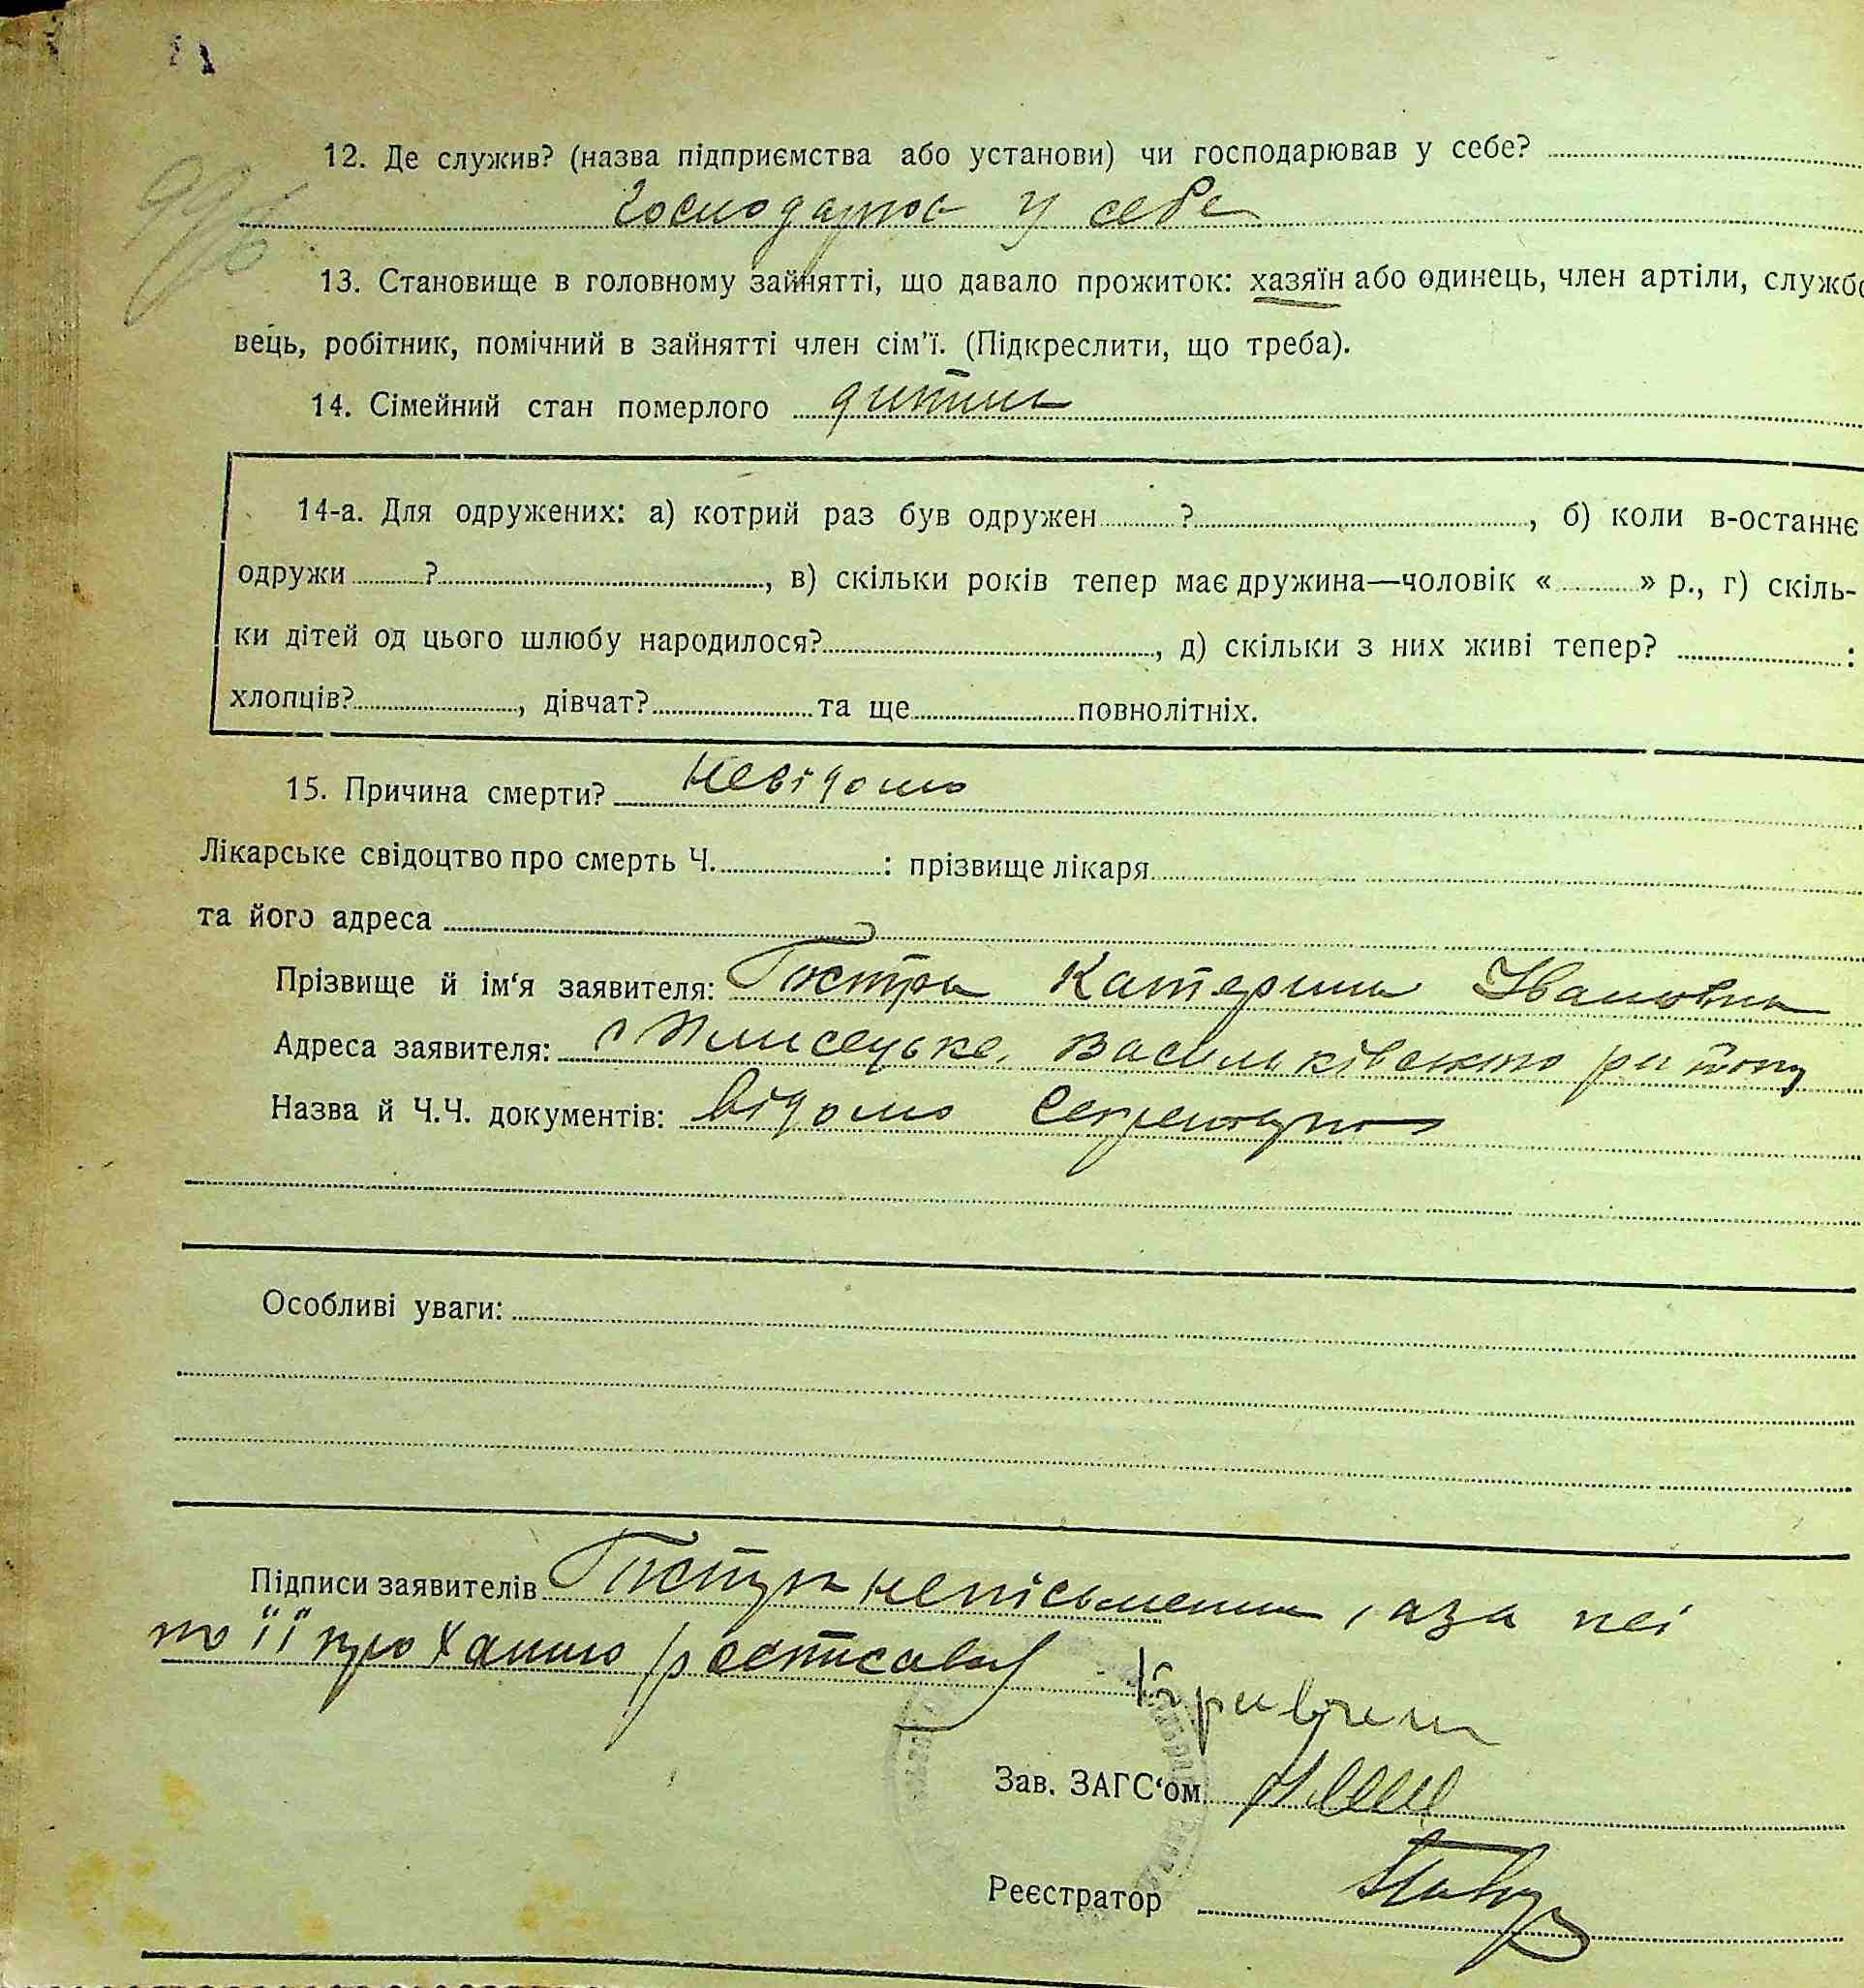 12. Де служив? (назва підприємства або установи) чи господарював у себе?
господарюв у себе
13. Становище в головному зайнятті, що давало прожиток: хазяїн або одинець, член артіли, службо
вець, робітник, помічний в зайнятті член сім'ї. (Підкреслити, що треба).
14. Сімейний стан померлого дитина
14-а. Для одружених: а) котрий раз був одружен ? , б) коли в-останнє
одружи ? , в) скільки років тепер має дружина—чоловік « » р., г) скіль-
ки дітей од цього шлюбу народилося? , д) скільки з них живі тепер? :
хлопців? , дівчат? та ще повнолітніх.
15. Причина смерти? невідома
Лікарське свідоцтво про смерть Ч. : прізвище лікаря
та його адреса
Прізвище й ім'я заявителя: Катерина Івановна
Адреса заявителя: с Плисецьке, Васильківского району
Назва й Ч.Ч. документів: відомо
Особливі уваги:
Підписи заявителів неписьменна, а за неї
по її проханню росписався
Зав. ЗАГС'ом
Реєстратор